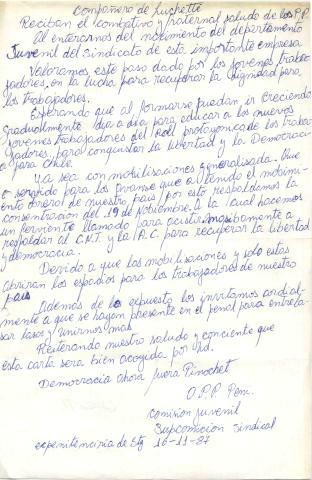 Compañero de Luchetti
Reciban el combativo y fraternal saludo de los P.P.
Al enterarnos del nacimiento del departamento
Juvenil del Sindicato de esta importante empresa
Valoramos este paso dado por los jovenes traba-
jadores, en la lucha para recuperar la dignidad para
los trabajadores.
Esperando que al formarse puedan ir creciendo
gradualmente dia a dia para educar a los nuevos
jovenes trabajadores del roll protagonico de los traba-
jadores, para conquistar la libertad y la Democraci-
a para Chile
ya sea con mobilisaciones y generalisada. Que
a servido para los avanse que a tenido el movimi-
ento obrero de nuestro pais y por esto respaldamos la
consentracion del 19 de Noviembre. A la cual hacemos
un ferviente llamado para asistir masibamente a
respaldar al C.N.T. y la A.C. para recuperar la libertad
y democracia.
Devido a que las mobilisaciones y solo estas
abriran los espacios para los trabajadores de nuestro
pais
Ademas de lo expuesto los invitamos cordial-
mente a que se hagan presente en el penal para entrela-
sar lasos y unirnos mas
Reiterando nuestro saludo y conciente que
esta carta sera bien acogida por Ud.
Democracia Ahora fuera Pinochet
O.P.P. Pen.
Comision juvenil
Subcomicion Sindical
expenitenciria de Stg 16-11-87